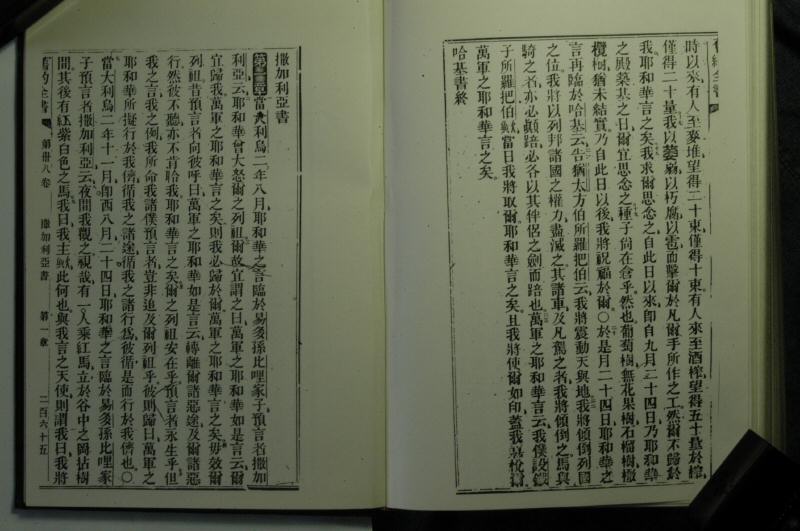 時以來有人至麥堆望得二十束僅得十束有人來至酒榨望得五十量於榨
僅得二十量我以蒌蔫以朽腐以雹而擊爾於凡爾手所作之工然爾不歸於
我耶和華言之矣我求爾思念之自此日以來卽自九月二十四日乃耶和華
之殿築基之日爾宜思念之種子尙在倉乎然也葡萄樹無花果樹石榴樹橄
欖樹猶未結實乃自此日以後我將祝福於爾〇於是月二十四日耶和華之
言再臨於哈基云告猶太方伯所羅把伯云我將震動天與地我將傾倒列國
之位我將以列邦諸國之權力盡滅之其諸車及凡駕之者我將傾倒之馬與
騎之者亦必顚踣必各以其伴侶之劍而踣也萬軍之耶和華言云我僕設
子所羅把伯歟當日我將取爾耶和華言之矣且我將使爾如印蓋我
萬軍之耶和華言之矣
哈基書終
撒加利亞書
第一章 當大利烏二年八月耶和華之言臨於易多孫比哩家子預言者撒加
利亞云耶和華曾大怒爾之列祖爾故宜謂之曰萬軍之耶和華如是言云爾
宜歸我萬軍之耶和華言之矣則我必歸於爾萬軍之耶和華言之矣毋效爾
列祖昔預言者向彼呼曰萬軍之耶和華如是言云轉離爾諸惡途及爾諸惡
行然彼不聽亦不肯聆我耶和華言之矣爾之列祖安在乎預言者永生乎但
我之言我之例我所命我諸僕預言者豈非追及爾列祖乎彼則歸曰萬軍之
耶和華所擬行於我儕循我之諸途循我之諸行爲彼循是而行於我儕也〇
當大利烏二年十一月卽西八月二十四日耶和華之言臨於易多孫比哩家
子預言者撒加利亞云夜間我觀之視哉有一人乘紅馬立於谷中之岡拈樹
間其後有紅紫白色之馬我曰我主歟此何也與我言之天使則謂我曰我將
舊約全書 第卅八卷 撒加利亞書 第一章 二百六十五